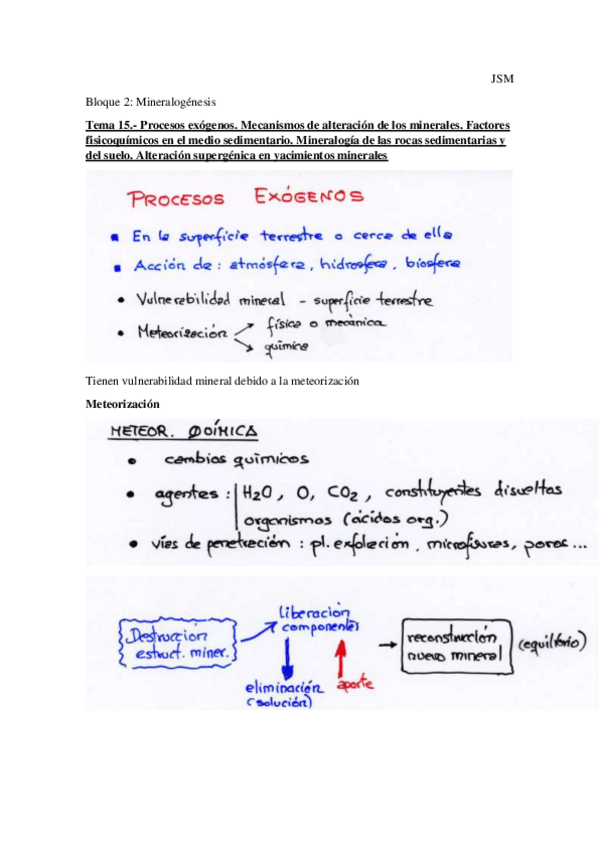 JSM
Bloque 2: Mineralogénesis
Tema 15.- Procesos exógenos. Mecanismos de alteración de los minerales. Factores
fisicoquímicos en el medio sedimentario. Mineralogía de las rocas sedimentarias y
del suelo. Alteración supergénica en yacimientos minerales
PROCESOS EXÓGENOS
En la superficie terrestre o cerca de ella
Acción de: atmósfera, hidrosfera, biosfera
• Vulnerabilidad mineral - superficie terrestre
• Meteorización
física o mecánica
química
Tienen vulnerabilidad mineral debido a la meteorización
Meteorización
METEOR. QUÍMICA
• cambios químicos
• agentes: H2O, O, CO2, constituyentes disueltos
organismos (ácidos org.)
• vías de penetración: pl. exfoliación, microfisuras, poros...
Destrucción
estruct. miner.
liberación
componentes
eliminación
(solución)
aporte
reconstrucción
nuevo mineral
(equilibrio)